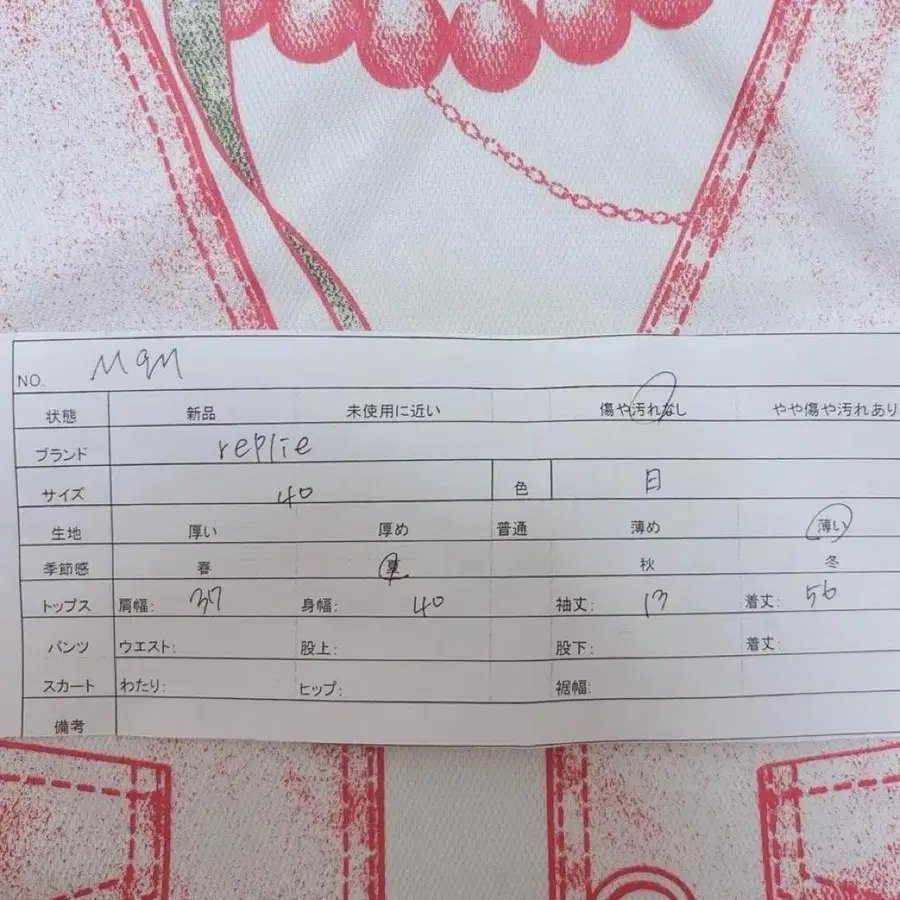 NO.
状態 新品 未使用に近い 傷や汚れなし やや傷や汚れあり
ブランド replie
サイズ 40 色 日
生地 厚い 厚め 普通 薄め 薄い
季節感 春 夏 秋 冬
トップス 肩幅: 37 身幅: 40 袖丈: 13 着丈: 56
パンツ ウエスト: 股上: 股下: 着丈:
スカート わたり: ヒップ: 裾幅:
備考